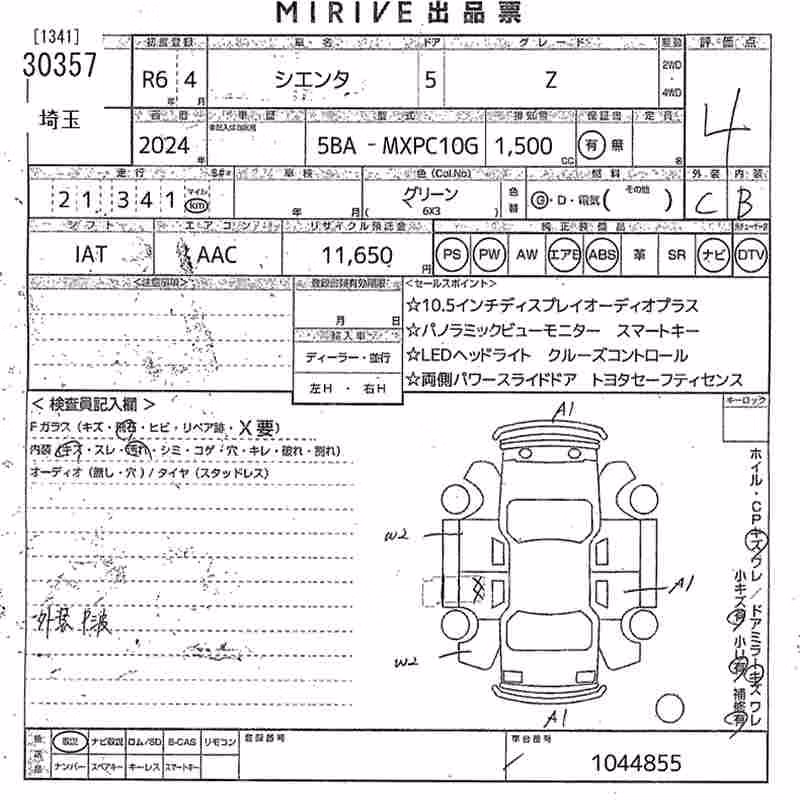 MIRIVE出品票
[1341]
30357
埼玉
初度登録 車名 ドア グレード 駆動 評価点
R6 4 シエンタ 5 Z 2WD・4WD
年 月
4
車歴 型式 排気量 保証書 定員
2024年 5BA - MXPC10G 1,500 CC 有 無 名
走行 車検 色(Col.No) 燃料 外装 内装
21,341 マイル km 年 月 グリーン 色替 G・D・電気( その他 ) C B
( 6X3 )
シフト エアコン リサイクル預託金 純正装備品
IAT AAC 11,650円 PS PW AW エアB ABS 革 SR ナビ DTV
<注意事項> 登録書類有効期限 <セールスポイント>
月 日
☆10.5インチディスプレイオーディオプラス
☆パノラミックビューモニター スマートキー
輸入車
ディーラー・並行
☆LEDヘッドライト クルーズコントロール
左H・右H
☆両側パワースライドドア トヨタセーフティセンス
<検査員記入欄>
キーロック
Fガラス(キズ・飛石・ヒビ・リペア跡・X要)
内装(キズ・スレ・汚れ・シミ・コゲ・穴・キレ・破れ・割れ)
オーディオ(無し・穴)/タイヤ(スタッドレス)
A1
W2
A1
W2
A1
外装 小波
ホイル・CPキズワレ/ドアミラーキズワレ
小キズ有 小凹有 補修有
後送品 取説 ナビ取説 ロム/SD B-CAS リモコン 登録番号 車台番号
ナンバー スペアキー キーレス スマートキー
1044855